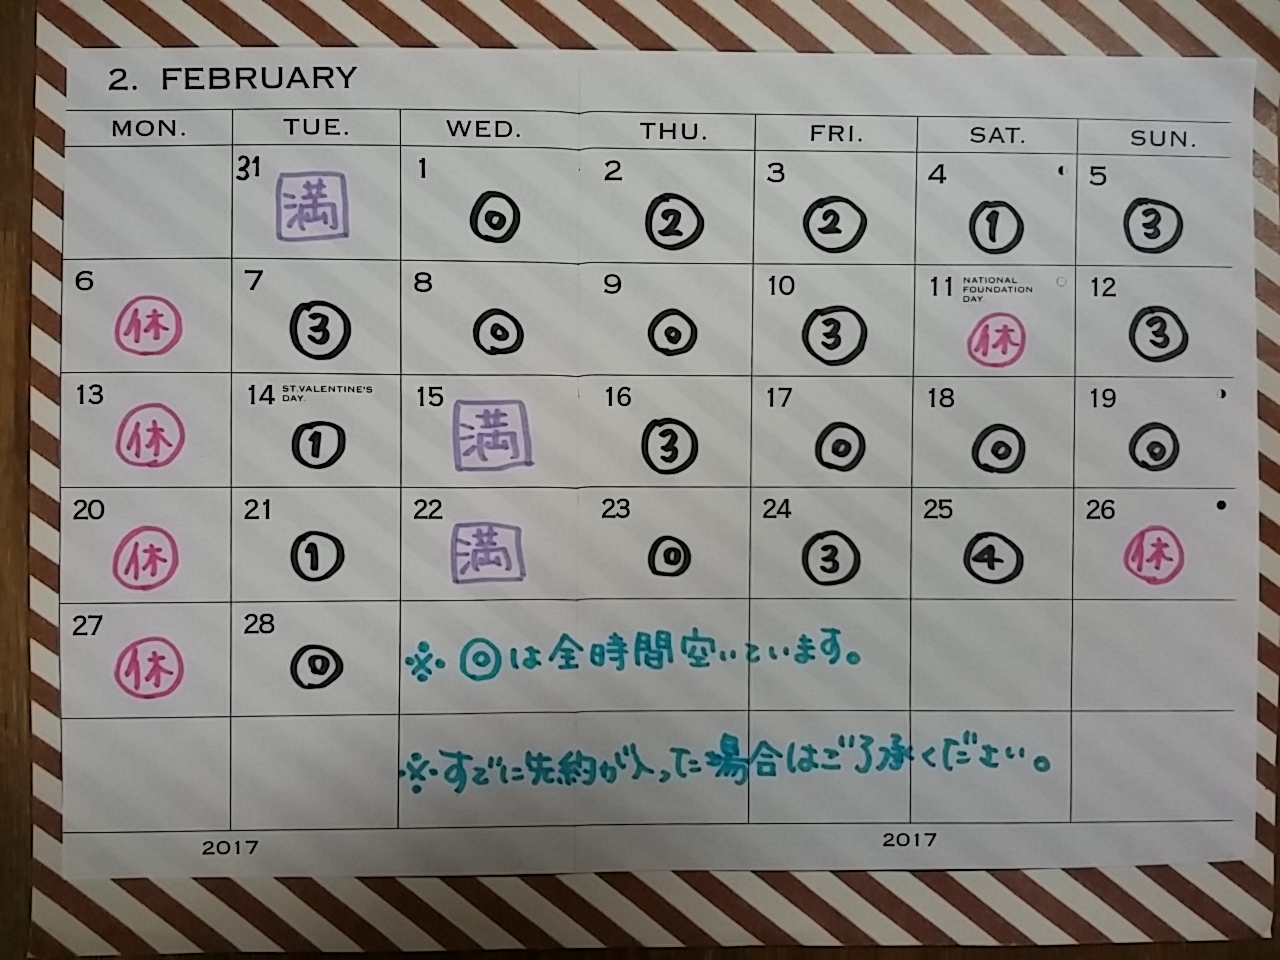 2. FEBRUARY
MON. TUE. WED. THU. FRI. SAT. SUN.
31 1 2 3 4 5
満 ◎ ② ② ① ③
6 7 8 9 10 11 NATIONAL FOUNDATION DAY. 12
休 ③ ◎ ◎ ③ 休 ③
13 14 ST.VALENTINE'S DAY. 15 16 17 18 19
休 ① 満 ③ ◎ ◎ ◎
20 21 22 23 24 25 26
休 ① 満 ◎ ③ ④ 休
27 28
休 ◎
※ ◎は全時間空いています。
※すでに先約が入った場合はご了承ください。
2017 2017